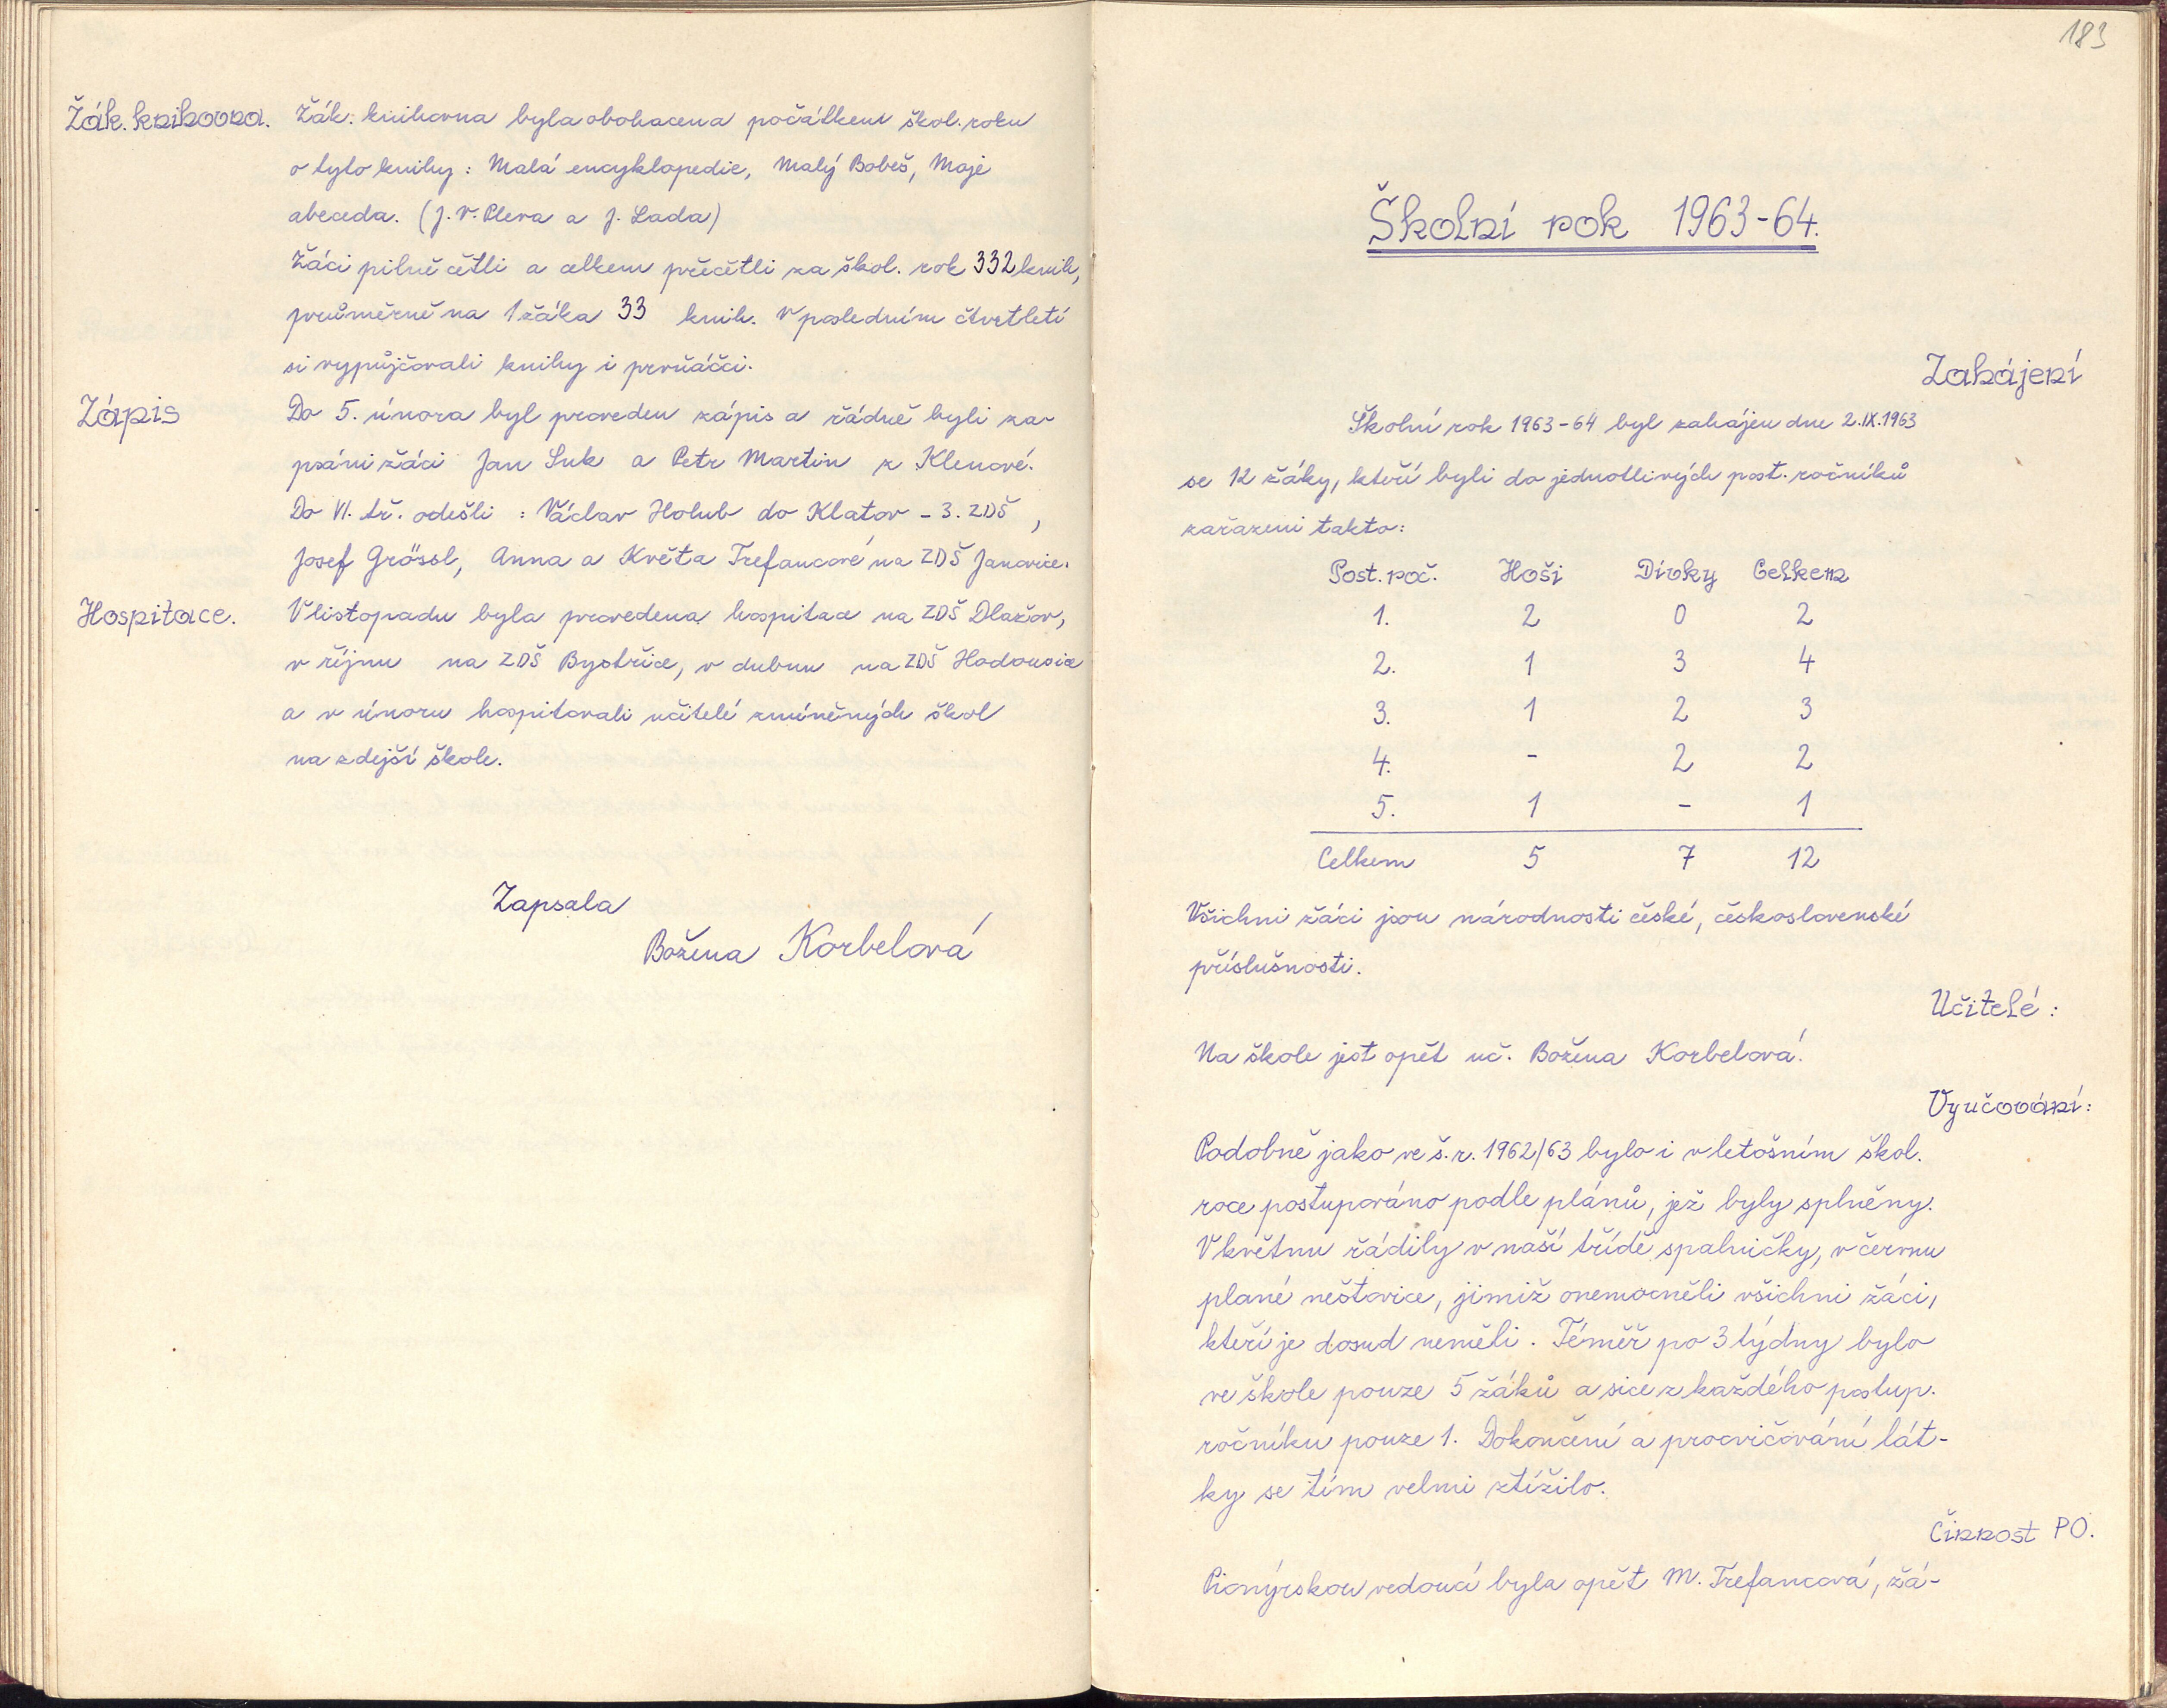 Žák. knihovna.
Žák. knihovna byla obohacena počátkem škol. roku
o tyto knihy: Malá encyklopedie, Malý Bobeš, Moje
abeceda. (J. V. Pleva a J. Lada)
Žáci pilně četli a celkem přečetli za škol. rok 332 knih,
průměrně na 1 žáka 33 knih. V posledním čtvrtletí
si vypůjčovali knihy i prvňáčci.
Zápis
Do 5. února byl proveden zápis a řádně byli za-
psáni žáci Jan Suk a Petr Martin z Klenové.
Do VI. tř. odešli: Václav Holub do Klatov - 3. ZDŠ,
Josef Grössl, Anna a Květa Trefancové na ZDŠ Janovice.
Hospitace.
V listopadu byla provedena hospitace na ZDŠ Dlažov,
v říjnu na ZDŠ Bystřice, v dubnu na ZDŠ Hodousice
a v únoru hospitovali učitelé zmíněných škol
na zdejší škole.
Zapsala
Božena Korbelová
183
Školní rok 1963-64.
Zahájení
Školní rok 1963-64 byl zahájen dne 2.IX.1963
se 12 žáky, kteří byli do jednotlivých post. ročníků
zařazeni takto:
Post. roč. Hoši Dívky Celkem
1. 2 0 2
2. 1 3 4
3. 1 2 3
4. - 2 2
5. 1 - 1
Celkem 5 7 12
Všichni žáci jsou národnosti české, československé
příslušnosti.
Učitelé:
Na škole jest opět uč. Božena Korbelová.
Vyučování:
Podobně jako ve š. r. 1962/63 bylo i v letošním škol.
roce postupováno podle plánů, jež byly splněny.
V květnu řádily v naší třídě spalničky, v červnu
plané neštovice, jimiž onemocněli všichni žáci,
kteří je dosud neměli. Téměř po 3 týdny bylo
ve škole pouze 5 žáků a sice z každého postup.
ročníku pouze 1. Dokončení a procvičování lát-
ky se tím velmi ztížilo.
Činnost PO.
Pionýrskou vedoucí byla opět M. Trefancová, žá-